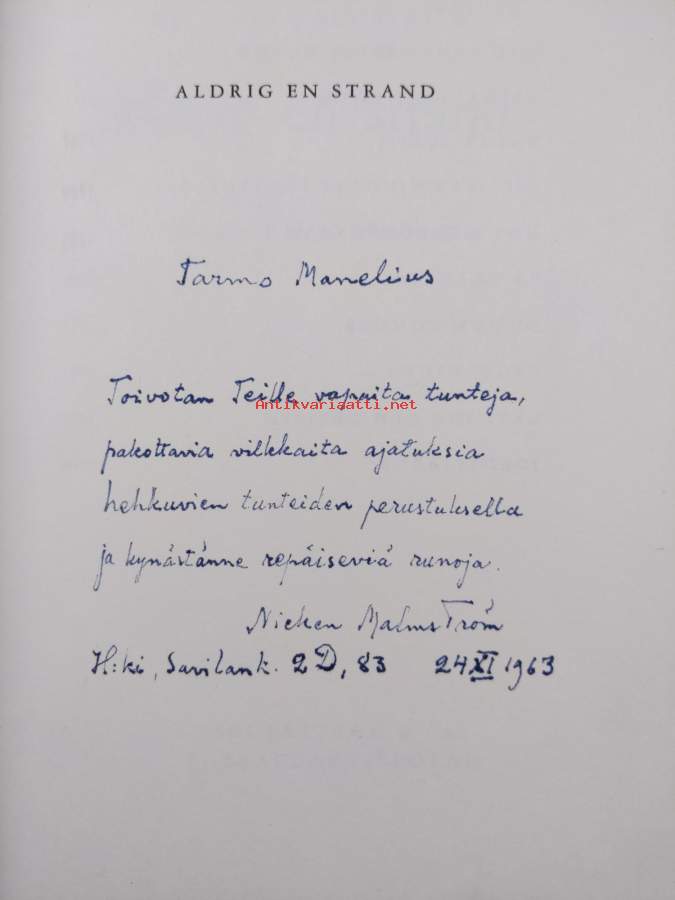 ALDRIG EN STRAND
Tarmo Manelius
Toivotan Teille vapaita tunteja,
Antikvariaatti.net
pakottavia vilkkaita ajatuksia
hehkuvien tunteiden perustuksella
ja kynästänne repäiseviä runoja.
Nicken MalmsTröm
H:ki, Savilank. 2 D, 83 24 XI 1963